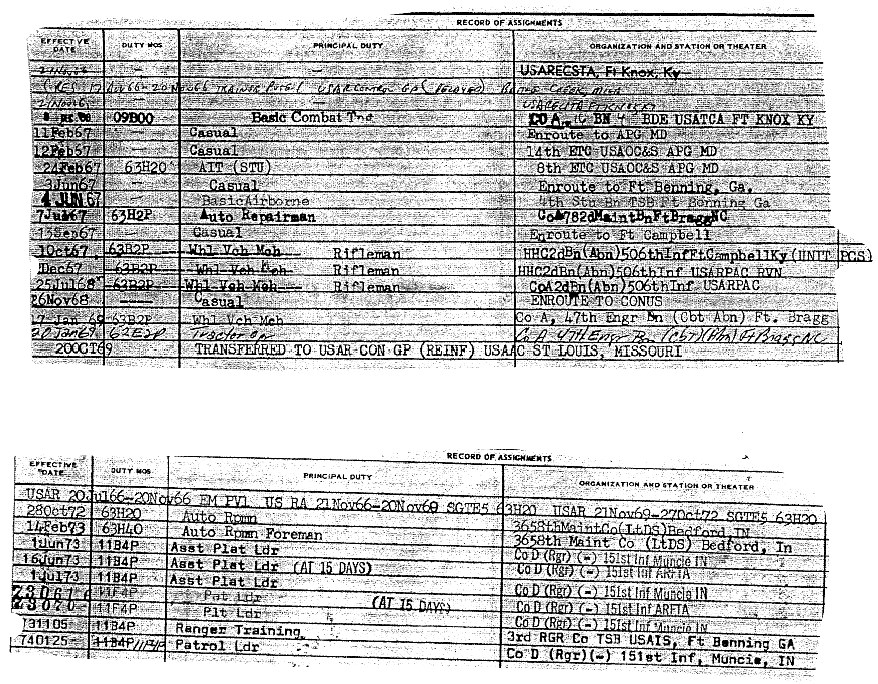 RECORD OF ASSIGNMENTS
EFFECTIVE DATE DUTY MOS PRINCIPAL DUTY ORGANIZATION AND STATION OR THEATER
USARECSTA, Ft Knox, Ky
09B00 Basic Combat Tng CO A BDE USATCA FT KNOX KY
11Feb67 Casual Enroute to APG MD
12Feb67 — Casual 14th ETC USAOC&S APG MD
24Feb67 63H20 AIT (STU) 8th ETC USAOC&S APG MD
3Jun67 Casual Enroute to Ft Benning, Ga.
4 JUN 67 BasicAirborne 4th Stu Bn TSB Ft Benning Ga
7Jul67 63H2P Auto Repairman CoA782dMaintBnFtBraggNC
13Sep67 Casual Enroute to Ft Campbell
1Oct67 63B2P Whl Veh Meh Rifleman HHC2dBn(Abn)506thInfFtCampbellKy(UNIT PCS)
Dec67 63B2P Whl Veh Meh Rifleman HHC2dBn(Abn)506thInf USARPAC RVN
25Jul68 63B2P Whl Veh Meh Rifleman CoA2dBn(Abn)506thInf USARPAC
26Nov68 — Casual ENROUTE TO CONUS
17 Jan 69 63B2P Whl Veh Meh Co A, 47th Engr Bn (Cbt Abn) Ft. Bragg
20 Jan69 62E2P Tractor Opr Co A 47th Engr Bn (Cbt)(Abn) Ft Bragg NC
20OCT69 TRANSFERRED TO USAR CON GP (REINF) USAAC ST LOUIS, MISSOURI
RECORD OF ASSIGNMENTS
EFFECTIVE DATE DUTY MOS PRINCIPAL DUTY ORGANIZATION AND STATION OR THEATER
USAR 20Jul66-20Nov66 EM PV1 US RA 21Nov66-20Nov69 SGTE5 63H20 USAR 21Nov69-27Oct72 SGTE5 63H20
28Oct72 63H20 Auto Rpmn 3658thMaintCo(LtDS)Bedford, IN
14Feb73 63H40 Auto Rpmn Foreman 3658th Maint Co (LtDS) Bedford, In
1Jun73 11B4P Asst Plat Ldr Co D (Rgr) (-) 151st Inf Muncie IN
16Jun73 11B4P Asst Plat Ldr (AT 15 DAYS) Co D (Rgr) (-) 151st Inf ARFTA
1Jul73 11B4P Asst Plat Ldr Co D (Rgr) (-) 151st Inf Muncie IN
11F4P Pat Ldr (AT 15 DAYS) Co D (Rgr) (-) 151st Inf ARFTA
11F4P Plt Ldr Co D (Rgr) (-) 151st Inf Muncie IN
731105 11B4P Ranger Training 3rd RGR Co TSB USAIS, Ft Benning GA
740125 11B4P Patrol Ldr Co D (Rgr)(-) 151st Inf, Muncie, IN